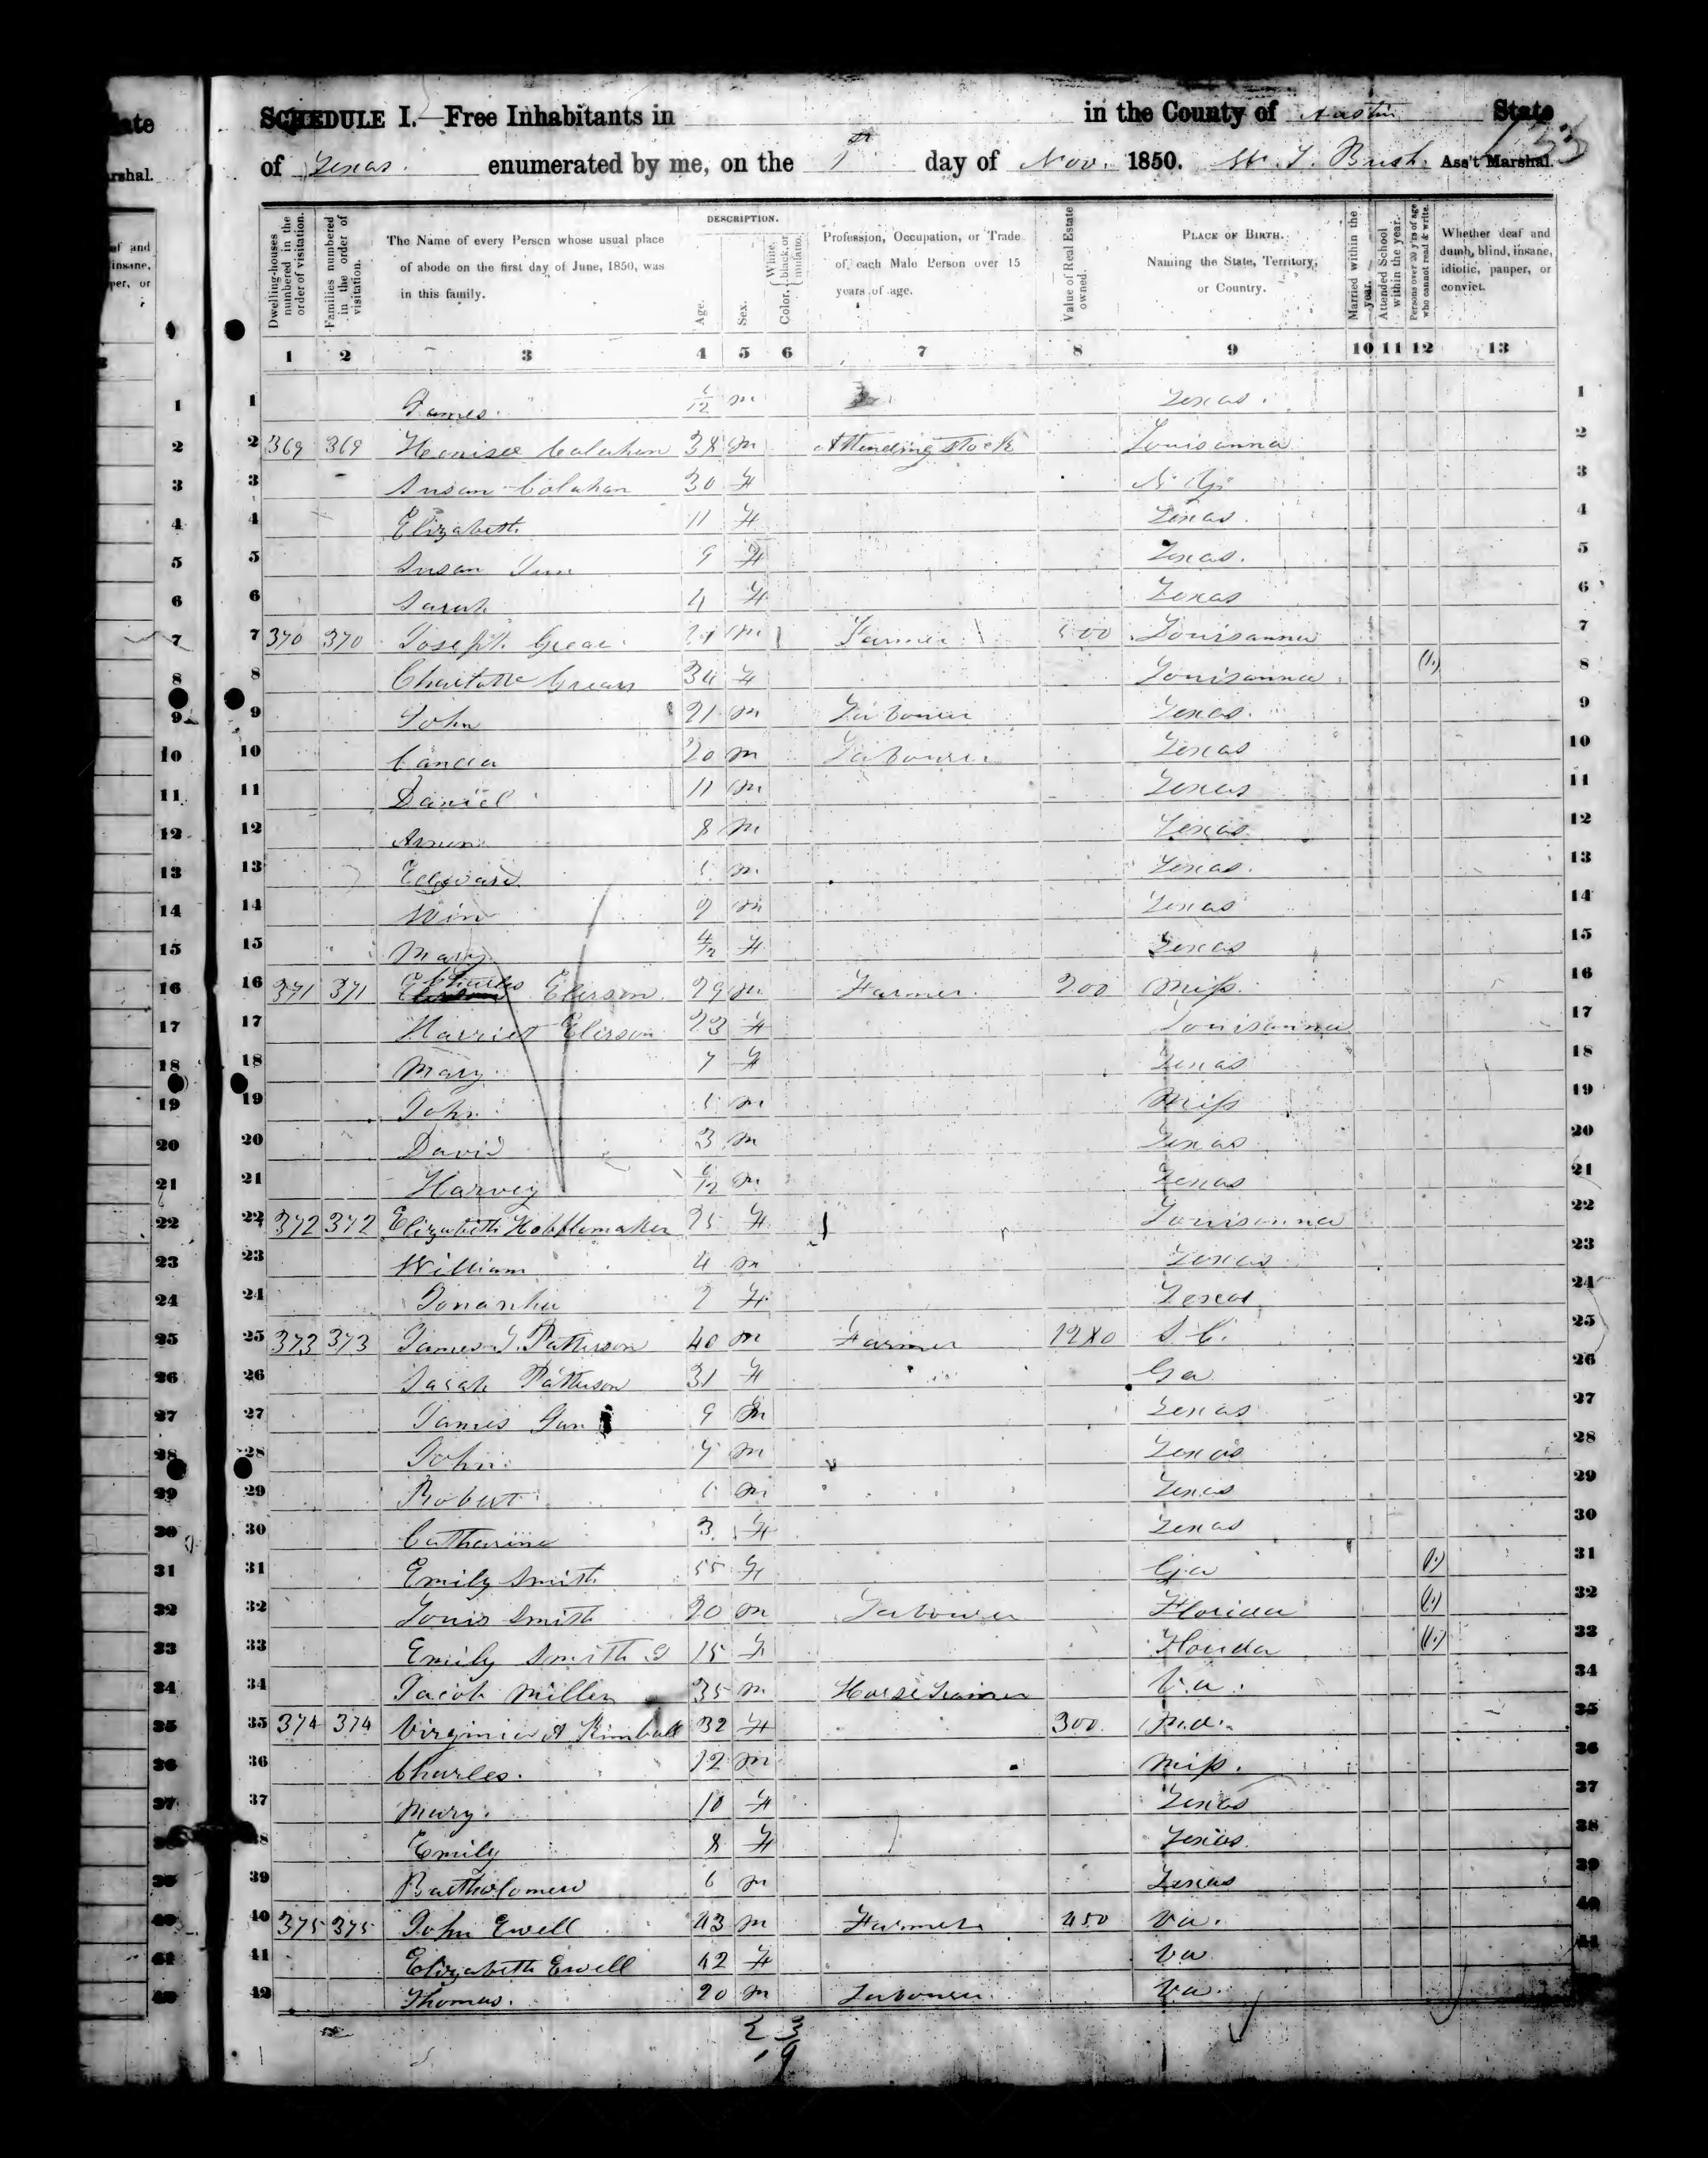 SCHEDULE I.—Free Inhabitants in in the County of Austin State
of Texas. enumerated by me, on the 1st day of Nov. 1850. Bush. Ass't Marshal.
DESCRIPTION.
Dwelling-houses numbered in the order of visitation.
Families numbered in the order of visitation.
The Name of every Person whose usual place of abode on the first day of June, 1850, was in this family.
Age.
Sex.
Color. { White, black, or mulatto.
Profession, Occupation, or Trade of each Male Person over 15 years of age.
Value of Real Estate owned.
PLACE OF BIRTH. Naming the State, Territory, or Country.
Married within the year.
Attended School within the year.
Persons over 20 y'rs of age who cannot read & write.
Whether deaf and dumb, blind, insane, idiotic, pauper, or convict.
1 2 3 4 5 6 7 8 9 10 11 12 13
1 James. /12 m Texas. 1
2 369 369 Calahan 38 m Attending Stock Louisanna 2
3 Susan Calahan 30 F 3
4 Elizabeth 11 F Texas. 4
5 Susan 9 F Texas. 5
6 Sarah 4 F Texas 6
7 370 370 Joseph m Farmer Louisanna 7
8 34 F Louisanna (1.) 8
9 John 21 m Labourer Texas. 9
10 20 m Labourer Texas 10
11 Daniel 11 m Texas 11
12 8 m Texas 12
13 Edward m Texas. 13
14 m Texas 14
15 Mary 4/12 F Texas 15
16 371 371 Charles Elerson 29 m Farmer. 200 Miss. 16
17 Harriet Elerson 23 F Louisanna 17
18 Mary. 7 F Texas 18
19 John. 5 m Miss 19
20 David 3 m Texas 20
21 Harvey /12 m Texas 21
22 372 372 Elizabeth 25 F Louisanna 22
23 William 4 m Texas 23
24 2 F Texas 24
25 373 373 James Patterson 40 m Farmer 1280 S. C. 25
26 Sarah Patterson 31 F Ga 26
27 James 9 m Texas 27
28 John. 7 m Texas 28
29 Robert m Texas 29
30 Catharine 3 F Texas 30
31 Emily Smith 55 F Ga (1.) 31
32 Louis Smith 20 m Labourer Florida (1.) 32
33 Emily Smith 15 F Florida (1.) 33
34 Jacob Miller 35 m Va. 34
35 374 374 Virginia A Kimball 32 F 300. Md. 35
36 Charles. 12 m Miss. 36
37 Mary. 10 F Texas 37
38 Emily 8 F Texas 38
39 Bartholomew 6 m Texas 39
40 375 375 John Ewell 43 m Farmer 450 Va. 40
41 Elizabeth Ewell 42 F Va 41
42 Thomas. 20 m Labourer. Va.